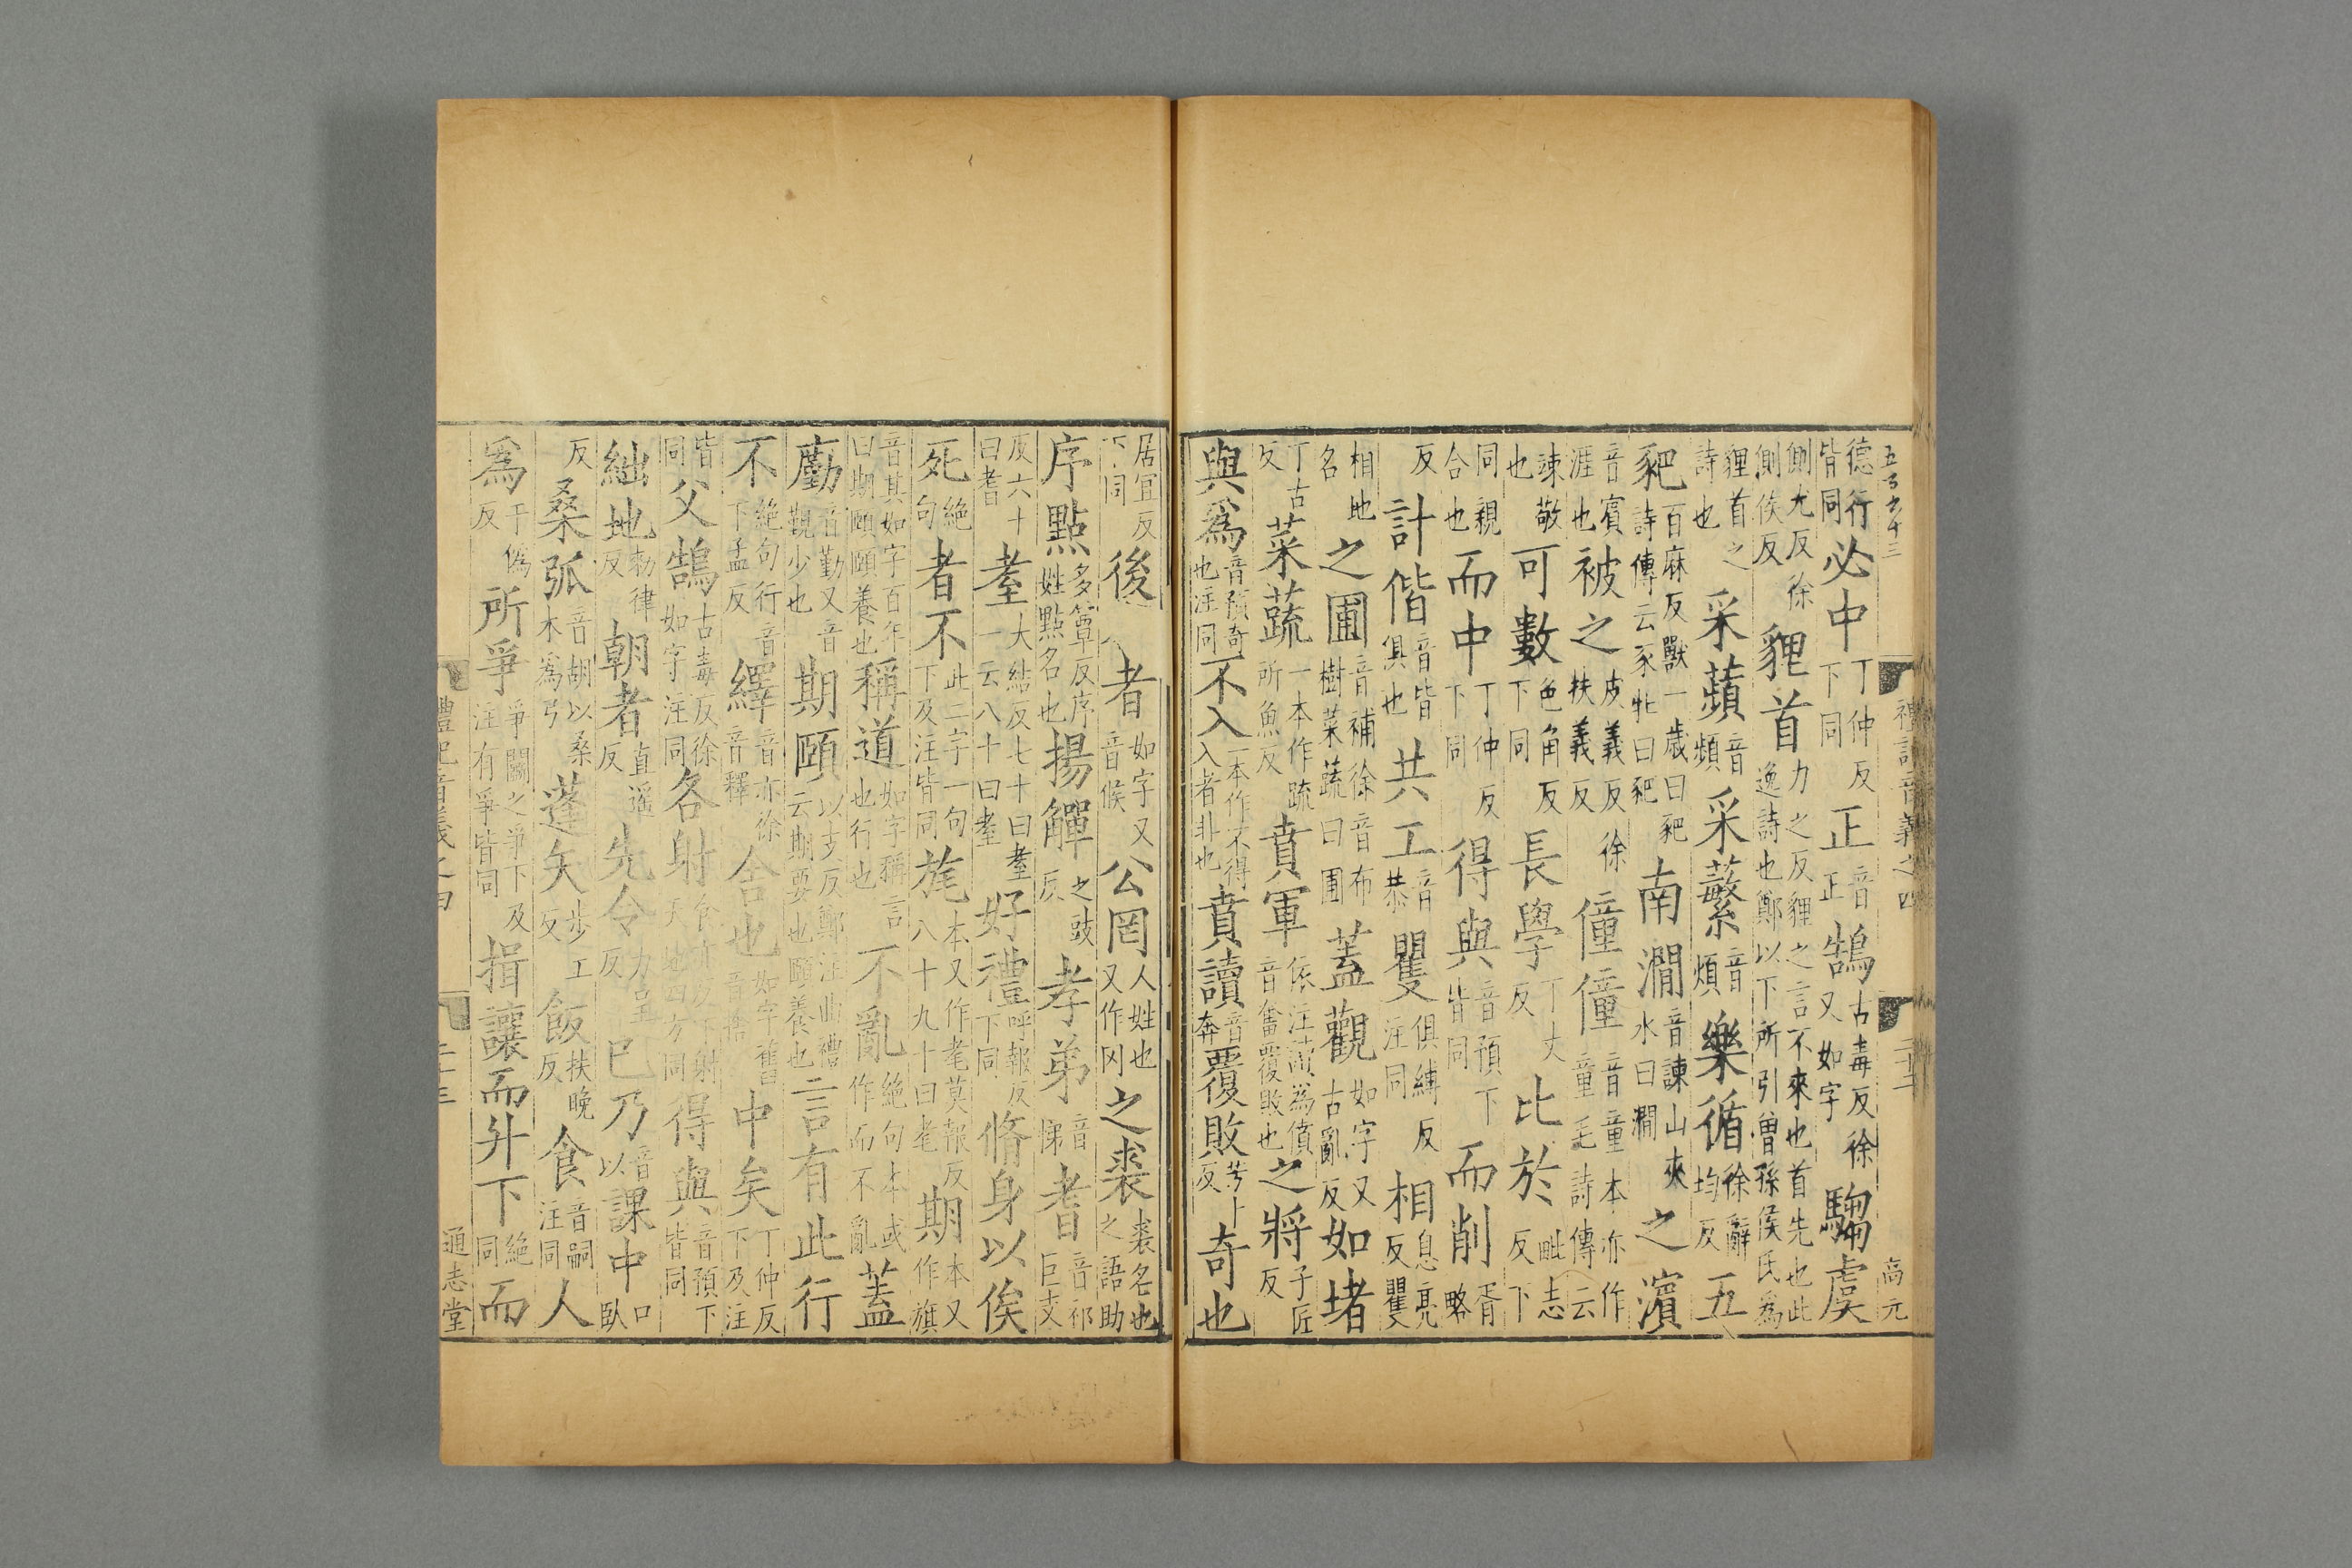 禮記音義之四
高元
德行皆同必中丁仲反下同正音正鵠古毒反徐又如字騶虞
側尤反徐側侯反貍首力之反貍之言不來也首先也此逸詩也鄭以下所引曾孫侯氏為
貍首之詩也采蘋音頻采蘩音煩樂循徐辭均反五
豝百麻反獸一歲曰豝詩傳云豕牝曰豝南澗音諫山夾水曰澗之濱
音賓涯也被之皮義反徐扶義反僮僮音童本亦作童毛詩傳云
竦敬也可數色角反下同長學丁丈反比於毗志反下
同親合也而中丁仲反下同得與音預下皆同而削胥略
反計偕音皆俱也共工音恭矍俱縛反注同相息亮反矍
相地名之圃音補徐音布樹菜蔬曰圃蓋觀如字又古亂反如堵
丁古反菜蔬一本作疏所魚反賁軍依注讀為僨音奮覆敗也之將子匠反
與爲音預奇也注同不入一本作不得入者非也賁讀音奔覆敗芳卜反奇也
居宜反下同後者如字又音候公罔人姓也又作冈之裘裘名也之語助
序點多簟反序姓點名也揚觶之豉反孝弟音悌耆音祁巨支
反六十曰耆耋大結反七十曰耋一云八十曰耋好禮呼報反下同脩身以俟
死絕句者不此二字一句下及注皆同旄本又作耄莫報反八十九十曰耄期本又作旗
音其如字百年曰期頤頤養也稱道如字稱言也行也不亂絕句本或作而不亂蓋
勮音勤又音覲少也期頤以支反鄭注曲禮云期要也頤養也言有此行
不絕句行音下孟反繹音亦徐音釋舍也如字舊音捨中矣丁仲反下及注
皆同父鵠古毒反徐如字注同各射食亦反下射天地四方同得與音預下皆同
絀地勅律反朝者直遥反先令力呈反已乃音以課中口臥
反桑弧音胡以桑木為弓蓬矢步工反飯扶晚反食音嗣注同人
為于僞反所爭爭鬭之爭下及注有爭皆同揖讓而升下絕同而
通志堂